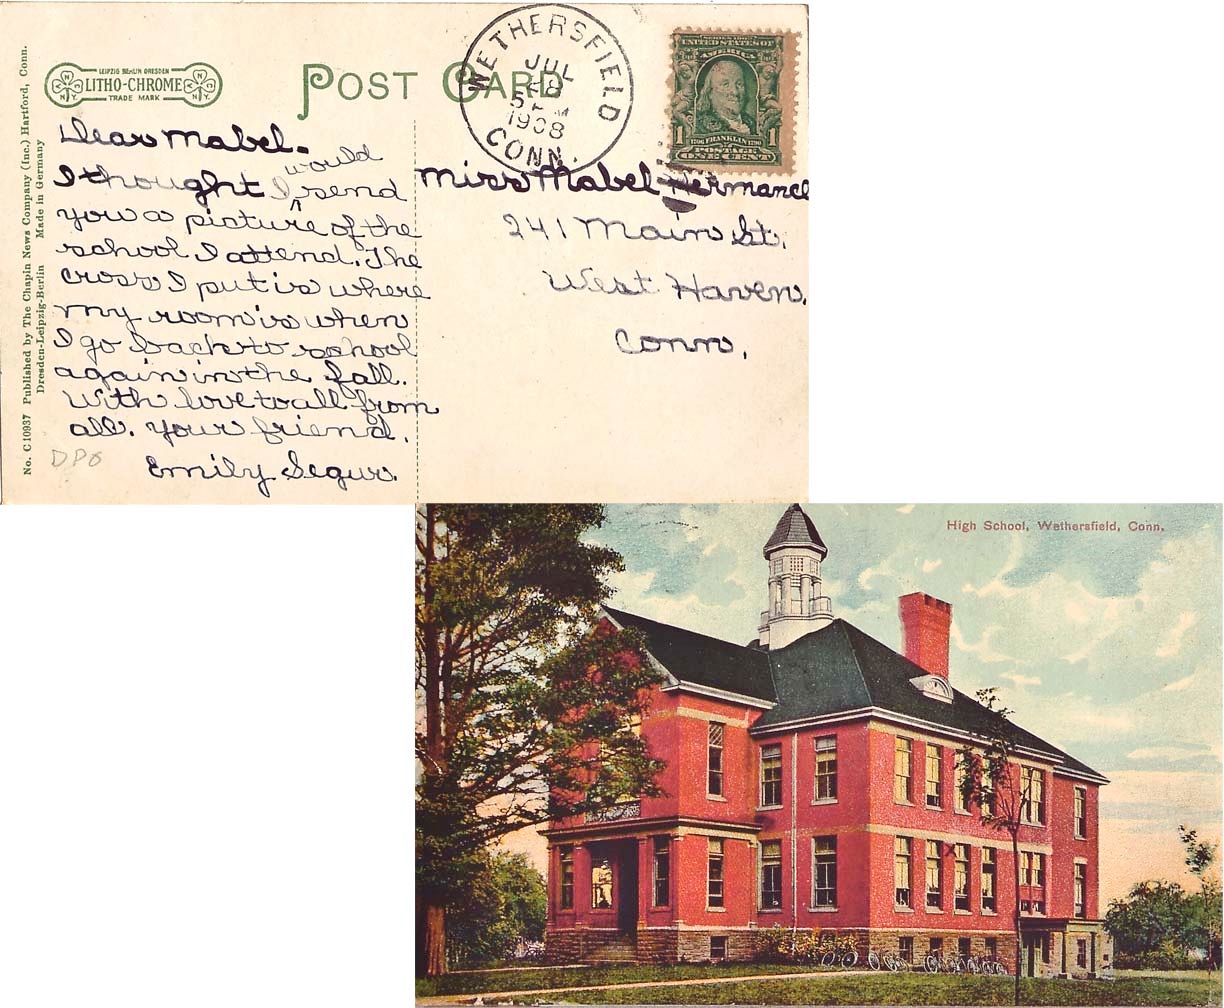 No. C 10937 Published by The Chapin News Company (Inc.) Hartford, Conn.
Dresden-Leipzig-Berlin Made in Germany
LEIPZIG BERLIN DRESDEN
LITHO-CHROME
TRADE MARK
N Y
N.Y.
POST CARD
WETHERSFIELD
JUL
28
5 PM
1908
CONN.
SERIES 1902
UNITED STATES OF
AMERICA
1 1
1706 FRANKLIN 1790
POSTAGE
ONE CENT
Dear Mabel.
I thought I would send
you a picture of the
school I attend. The
cross I put is where
my room is when
I go back to school
again in the fall.
With love to all from
all. Your friend,
Emily Segur.
DPO
Miss Mabel Hermance
241 Main St.
West Haven,
Conn.
High School, Wethersfield, Conn.